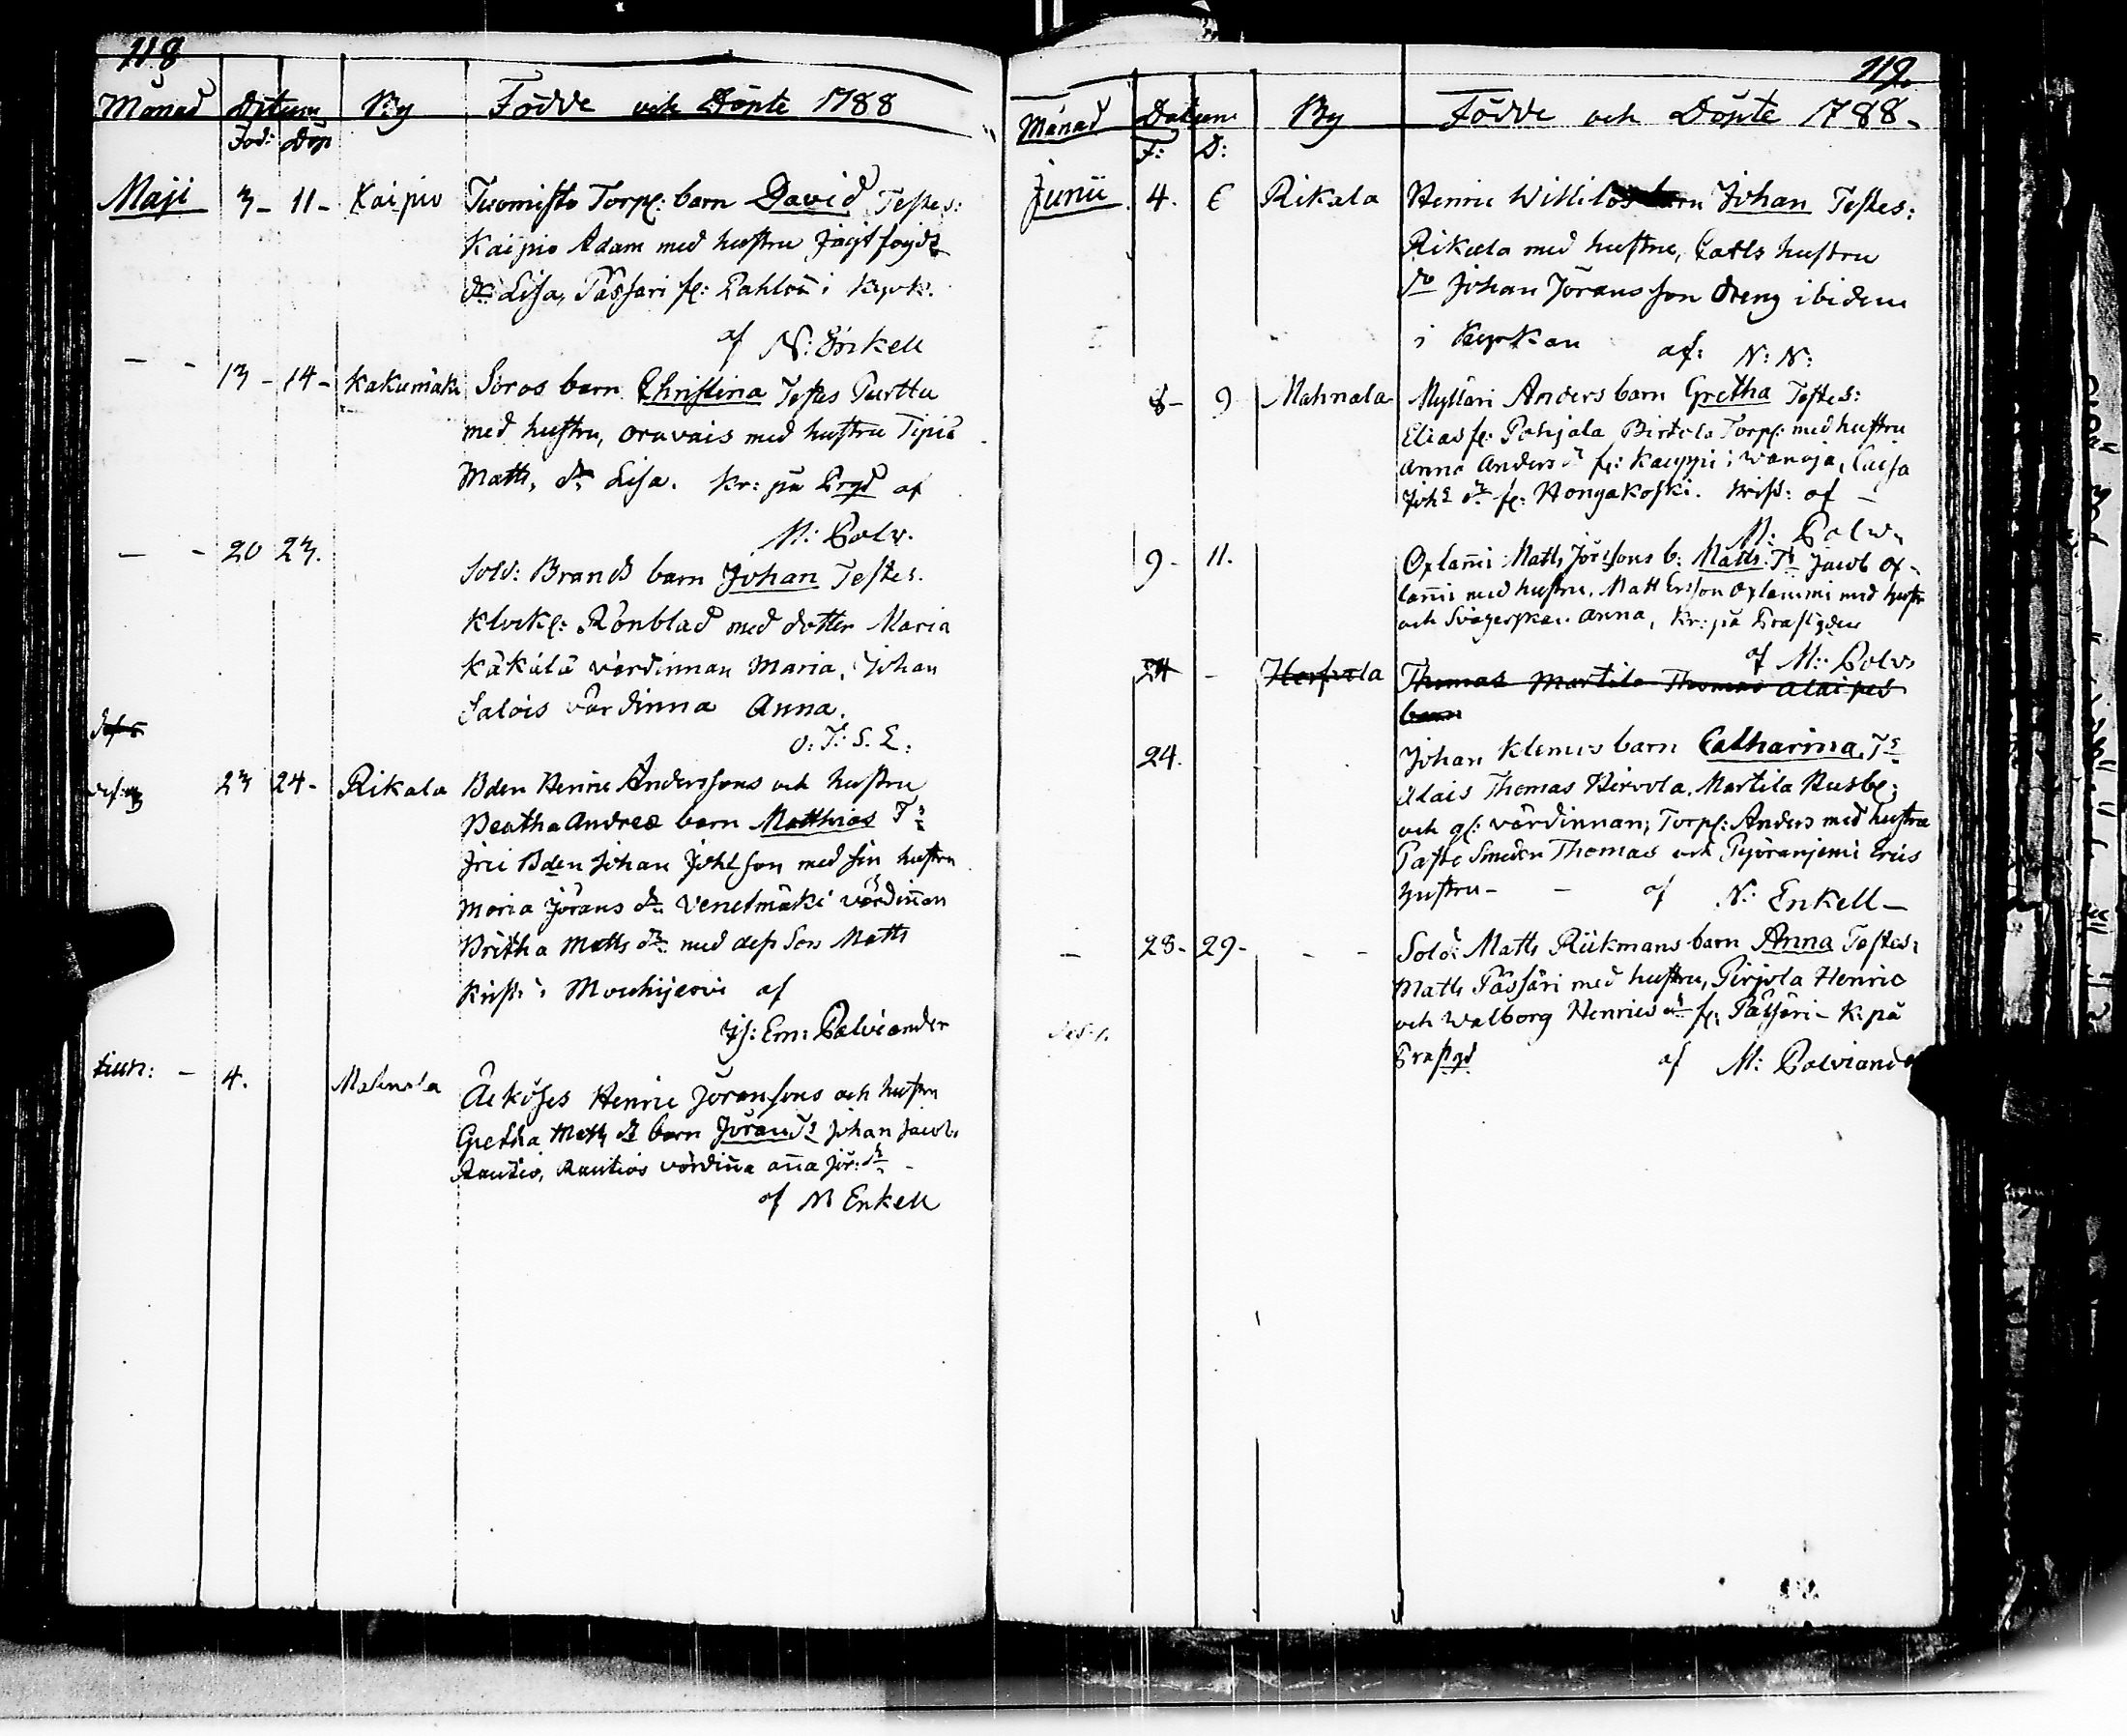 118
Månad Datum By Födde och Döpte 1788
Föd: Döp
Maji 3 - 11 - Kaipio Tuomisto Torp: barn David Testes:
Kaipio Adam med hustru Jägt fogds
dr Lisa, Pässäri Kyrk.
af N: Enkell
- - 13 - 14 - Kakumäki Soros barn Christina Testes Purttu
med hustru, Oravais med hustru Tipiä
Matts, dr Lisa. Kr: på Prgd af
M: Polv.
- - 20 23.
Sold: Brands barn Johan Testes.
Klock: Rönblad med dotter Maria
Käkälä värdinnan Maria, Johan
Salois värdinna Anna.
O: T: S. E:
23 24 - Rikala Bden Henric Anderssons och hustru
Beatha Andreæ barn Matthias Ts
Bden Johan Johsson med sin hustru
Maria Jörans dr Venetmäki värdinnan
Britha Matts dr med dess Son Matts
Krist i Mouhijervi af
Is: Em: Polviander
Jun: - 4. Mahnala Henric Joransons och hustru
Gretha Matts dr barn Jöran Ts Johan Jacobs
Rautio, Rautios värdiña Aña Jör: dr -
af N Enkell
119.
Månad Datum By Födde och Döpte 1788.
F: D:
Junii 4. 6 Rikala Henric Willilos barn Johan Testes:
Rikala med hustru, Carls hustru
do Johan Jöransson Dreng ibidem
i Kyrkan af: N: N:
8 - 9 Mahnala Mylläri Anders barn Gretha Testes:
Elias fr: Pohjala Birtola Torp: med hustru
Anna Anders dr fr: Kauppi i Wänöjä, Caisa
Joh: dr fr: Hongakoski. Krist: af -
M: Polv.
9 - 11. Oxlañi Matts Jörssons b: Matts. Ts Jacob Ox-
lañi med hustru, Matt Ersson Oxlammi med hustr
och Svägerskan Anna, Kr: på Prastgden
af M: Polv.
24 - Thomas Martila Thomas Alaises
barn
24. Johan Klemis barn Catharina, Ts
Alais Thomas Hirvola, Martila Husb:
och gl: värdinnan; Torp: Anders med hustru
Pasto Smeden Thomas och Pyöranjemi Erics
hustru - - af N: Enkell -
- 28 - 29 - - - Sold: Matts Rükmans barn Anna Testes:
Matts Pässäri med hustru, Pirjola Henric
och Walborg Henrics dr fr: Pässäri - K: på
Prastgd af M: Polviander